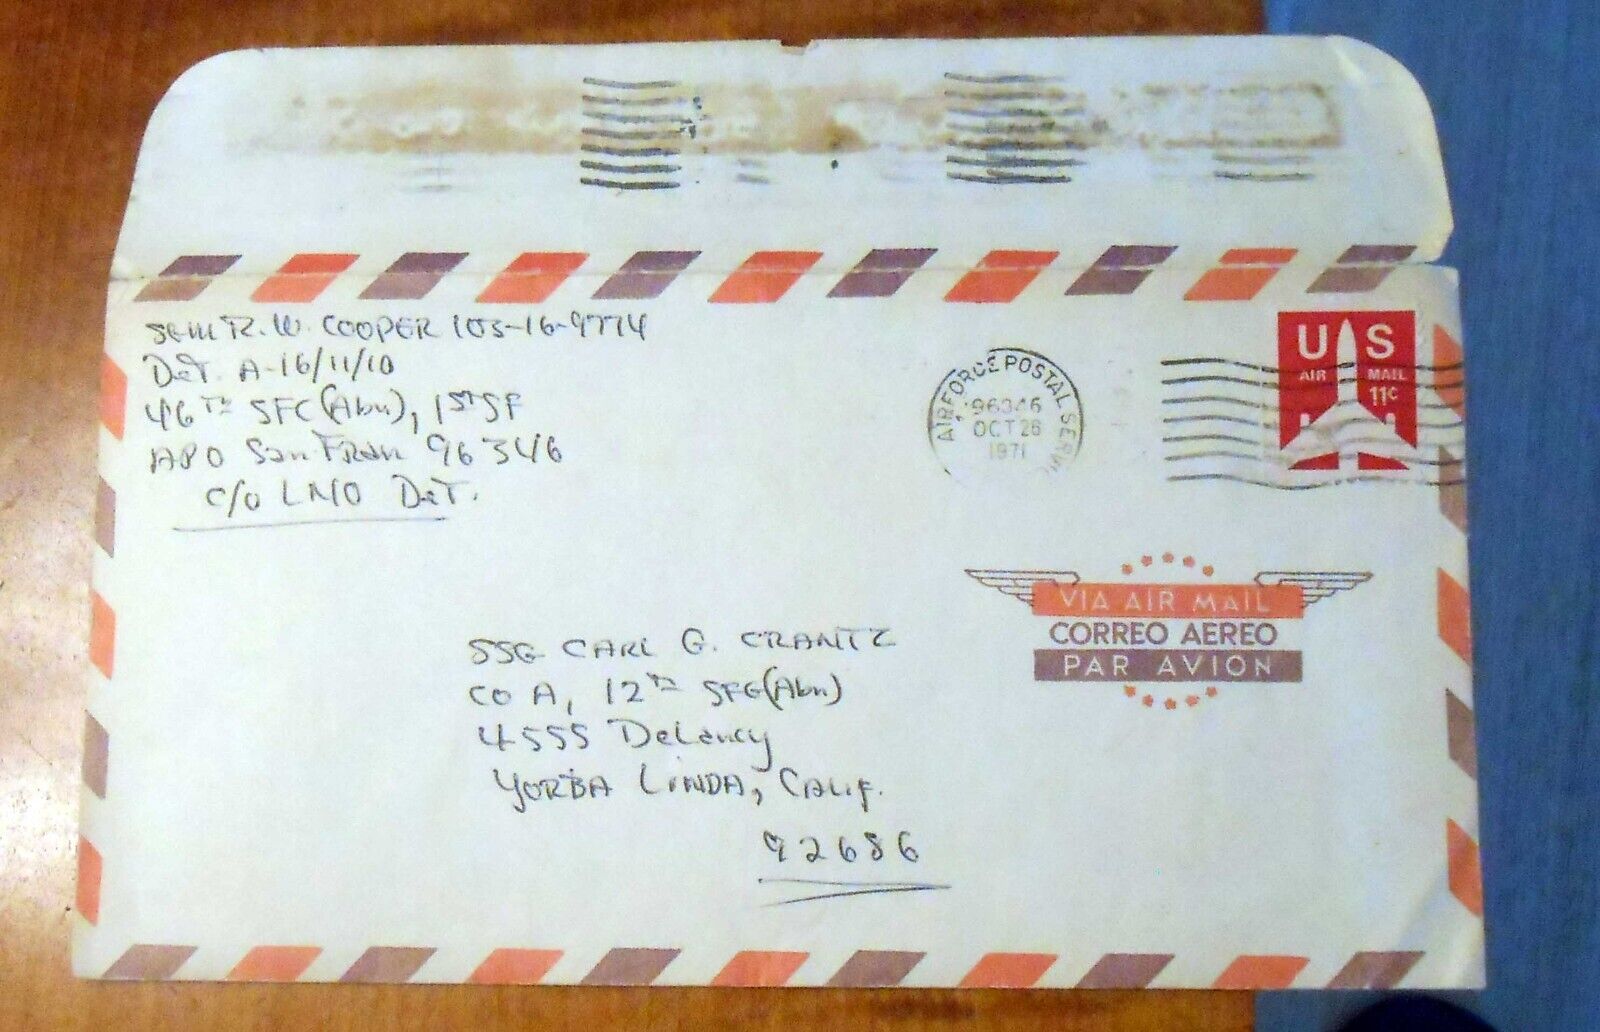 SGM R. W. COOPER 103-16-9774
Det. A-16/11/10
46th SFC (Abn), 1st SF
APO San Fran 96346
c/o LNO Det.
AIRFORCE POSTAL SERVI
96346
OCT 26
1971
US
AIR MAIL
11c
VIA AIR MAIL
CORREO AEREO
PAR AVION
SSG CARL G. CRANTZ
CO A, 12th SFG (Abn)
4555 DeLancy
YORBA LINDA, CALIF.
92686